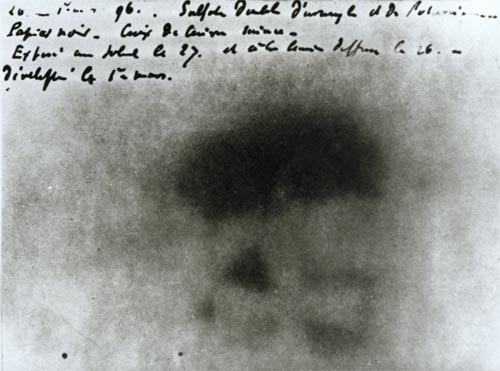 26 – 1er mars 96. Sulfate Double D'uranyle et de Potassium –
Papier noir. – Croix De Cuivre mince –
Exposé au soleil le 27. et à la lumière diffuse le 26. –
Développé le 1er mars.